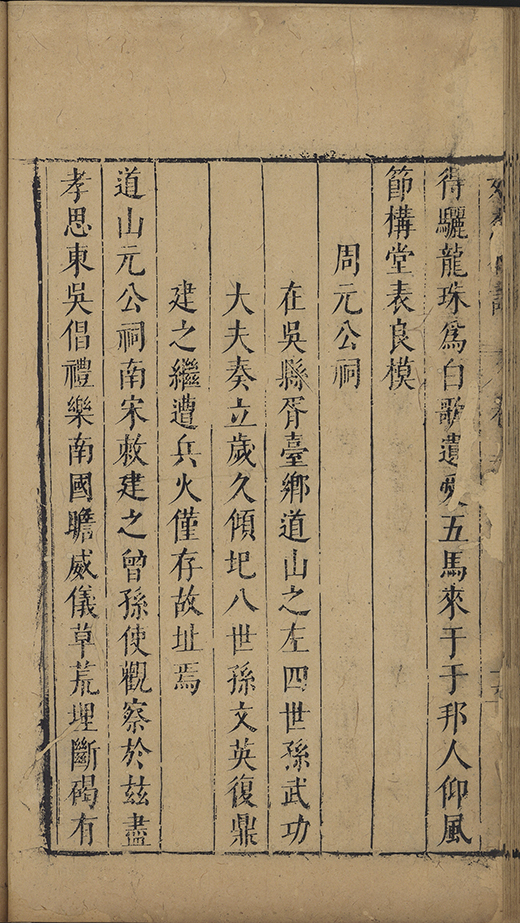 得驪龍珠爲白歌遺愛五馬來于于邦人仰風
節構堂表良模
周元公祠
在吳縣胥臺鄉道山之左四世孫武功
大夫奏立歲久傾圯八世孫文英復鼎
建之繼遭兵火僅存故址焉
道山元公祠南宋敕建之曾孫使觀察於兹盡
孝思東吳倡禮樂南國瞻威儀草荒埋斷碣有